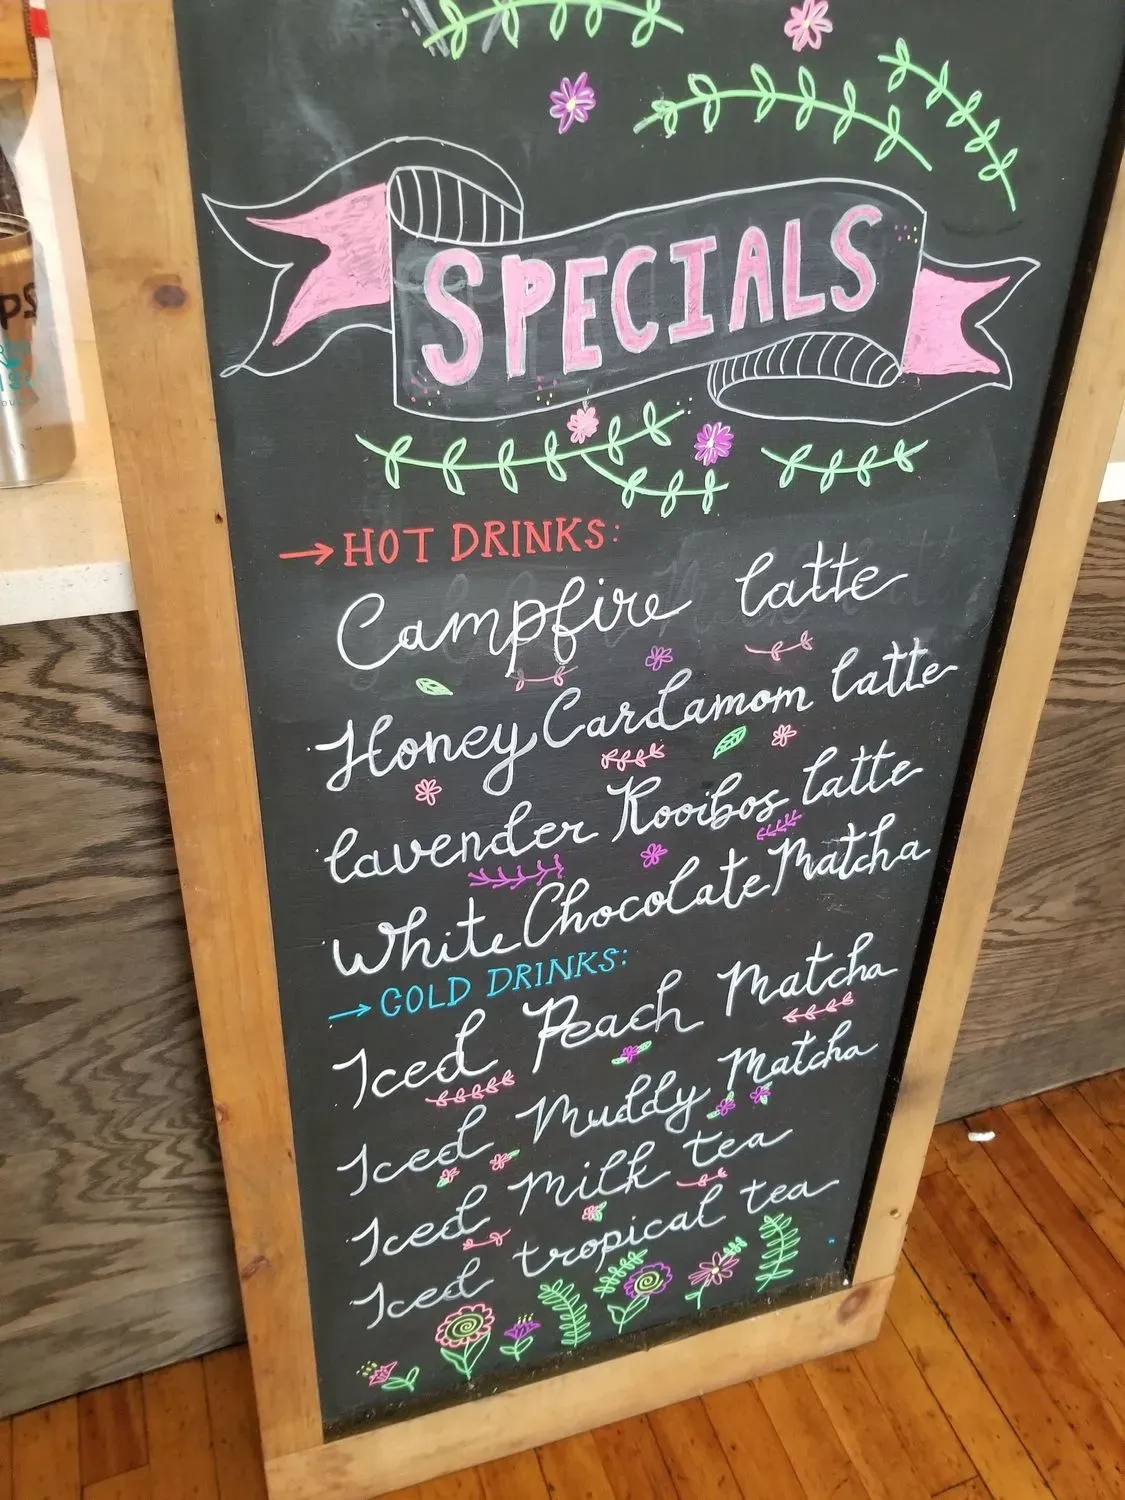 SPECIALS
→ HOT DRINKS:
Campfire latte
Honey Cardamom latte
lavender Rooibos latte
White Chocolate Matcha
→ COLD DRINKS:
Iced Peach Matcha
Iced Muddy Matcha
Iced Milk tea
Iced tropical tea